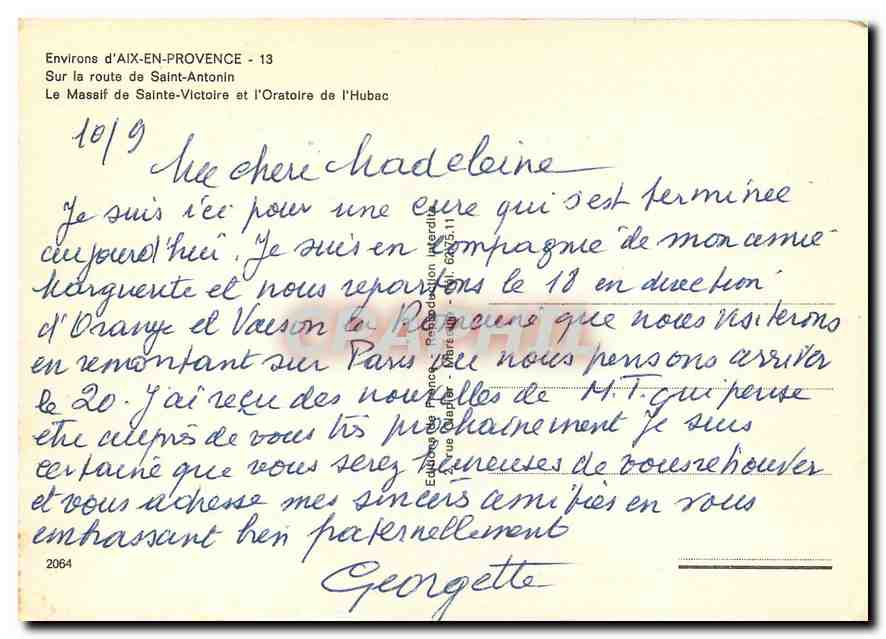 Environs d'AIX-EN-PROVENCE - 13
Sur la route de Saint-Antonin
Le Massif de Sainte-Victoire et l'Oratoire de l'Hubac
10/9
Ma cheri Madeleine
Je suis ici pour une cure qui s'est terminée
aujourd'hui. Je suis en compagnie de mon amie
Marguerite et nous repartons le 18 en direction
d'Orange et Vaison la Romaine que nous visiterons
en remontant sur Paris ou nous pensons arriver
le 20. J'ai reçu des nouvelles de M.T. qui pense
etre auprès de vous très prochainement Je suis
certaine que vous serez heureuses de vous retrouver
et vous adresse mes sincères amitiés en vous
embrassant bien fraternellement
Georgette
2064
Editions de France - Reproduction Interdite
rue - Marseille - Tél. 62.75.11
CPAPHIL